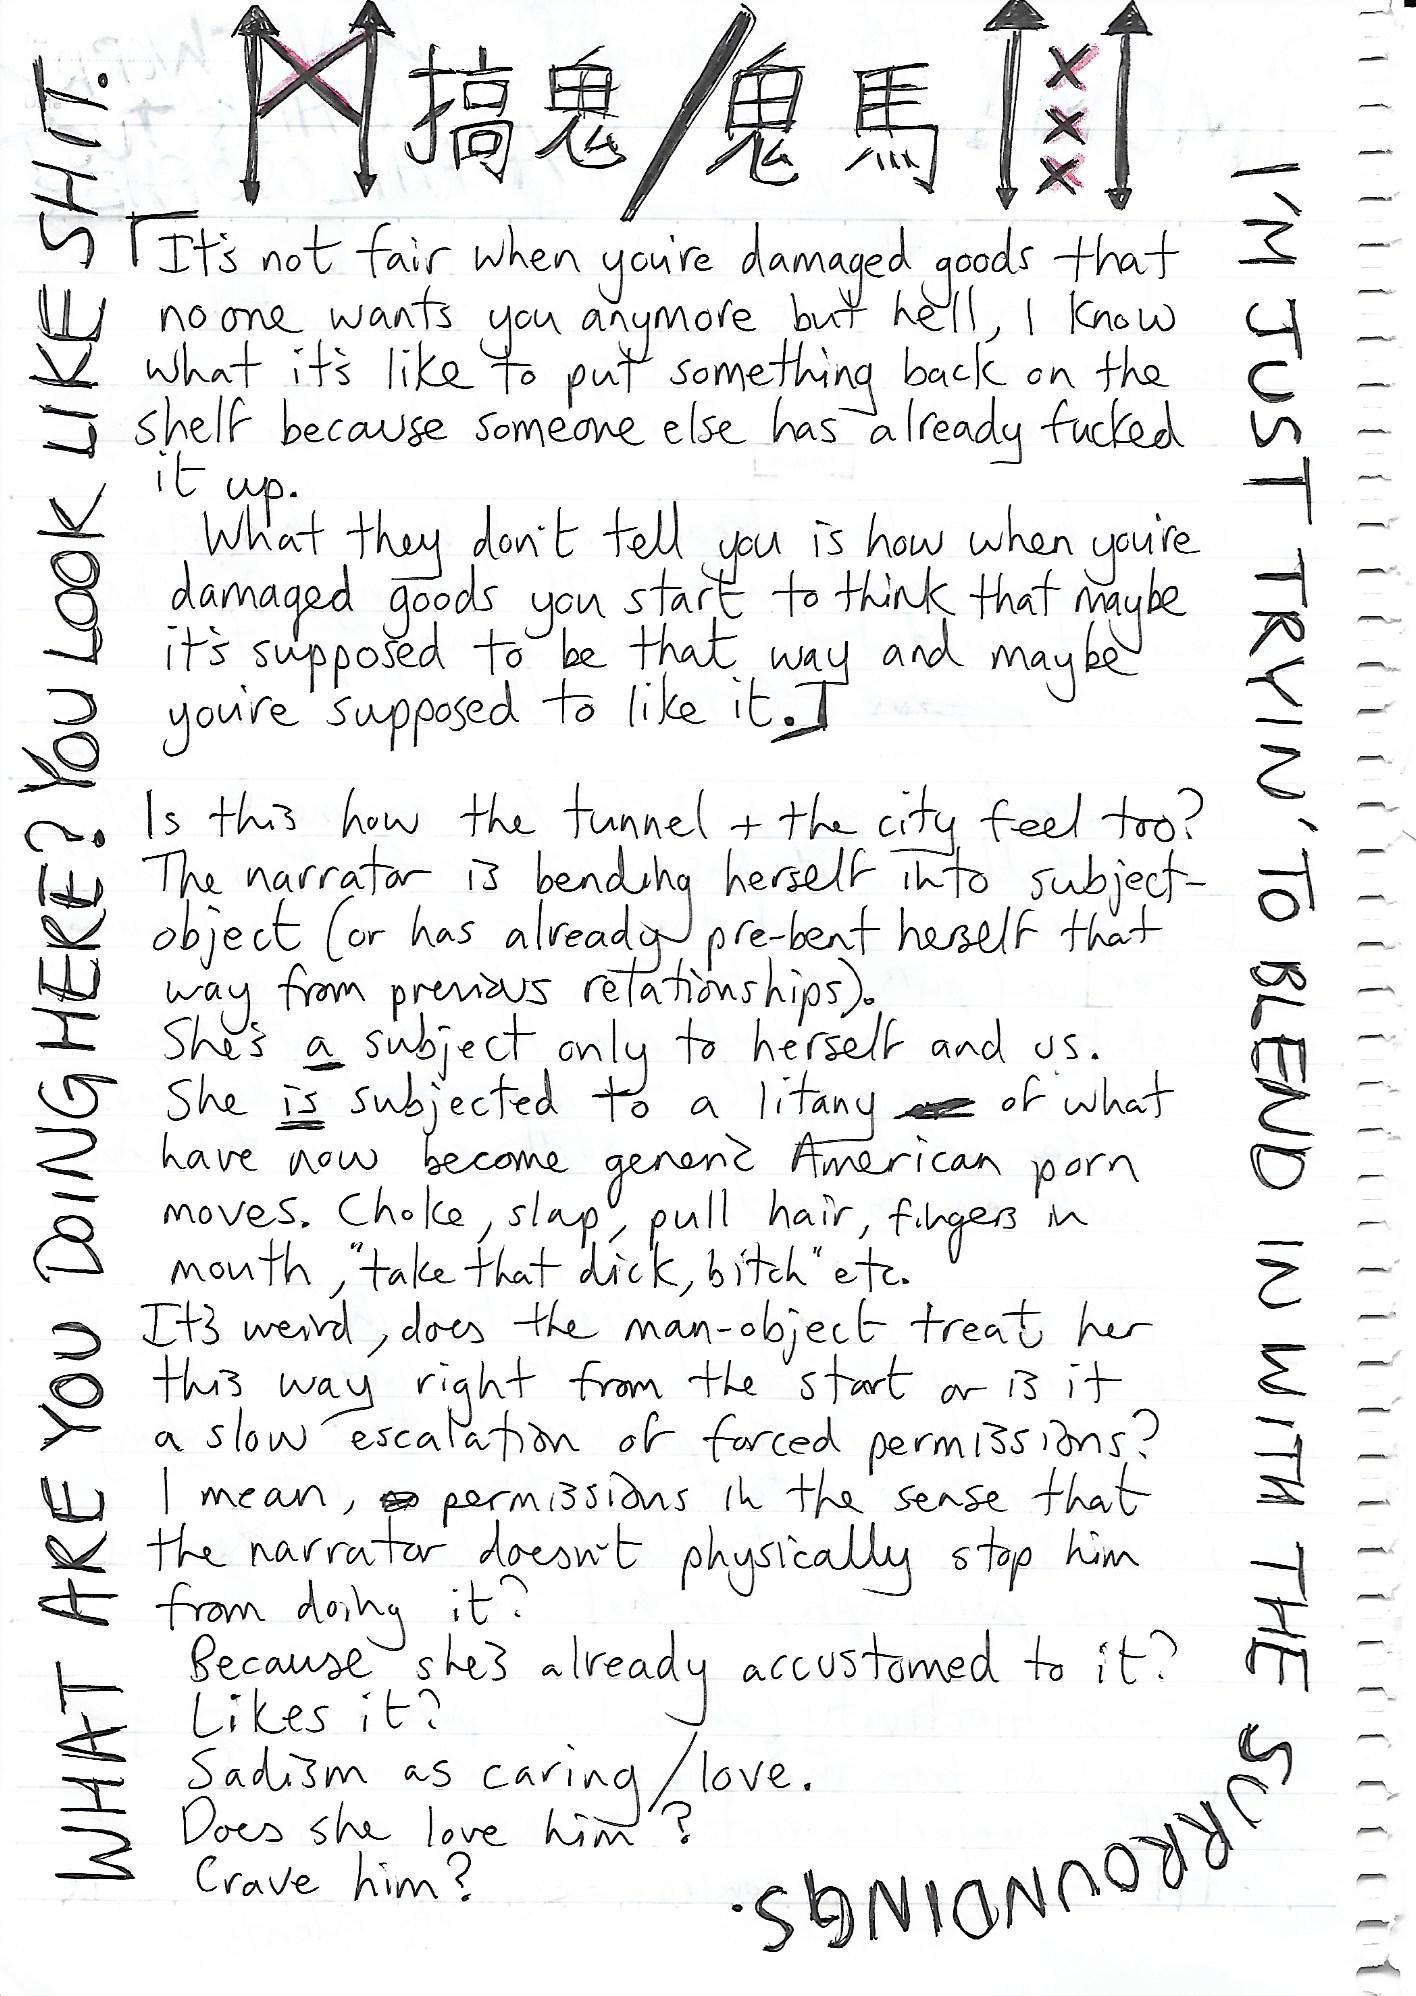 搞鬼/鬼馬 XXX
WHAT ARE YOU DOING HERE? YOU LOOK LIKE SHIT.
「It's not fair when you're damaged goods that
no one wants you anymore but hell, I know
what it's like to put something back on the
shelf because someone else has already fucked
it up.
What they don't tell you is how when you're
damaged goods you start to think that maybe
it's supposed to be that way and maybe
you're supposed to like it.」
Is this how the tunnel + the city feel too?
The narrator is bending herself into subject-
object (or has already pre-bent herself that
way from previous relationships).
She's a subject only to herself and us.
She is subjected to a litany of what
have now become generic American porn
moves. Choke, slap, pull hair, fingers in
mouth, "take that dick, bitch" etc.
It's weird, does the man-object treat her
this way right from the start or is it
a slow escalation of forced permissions?
I mean, permissions in the sense that
the narrator doesn't physically stop him
from doing it?
Because she's already accustomed to it?
Likes it?
Sadism as caring/love.
Does she love him?
Crave him?
I'M JUST TRYIN' TO BLEND IN WITH THE SURROUNDINGS.